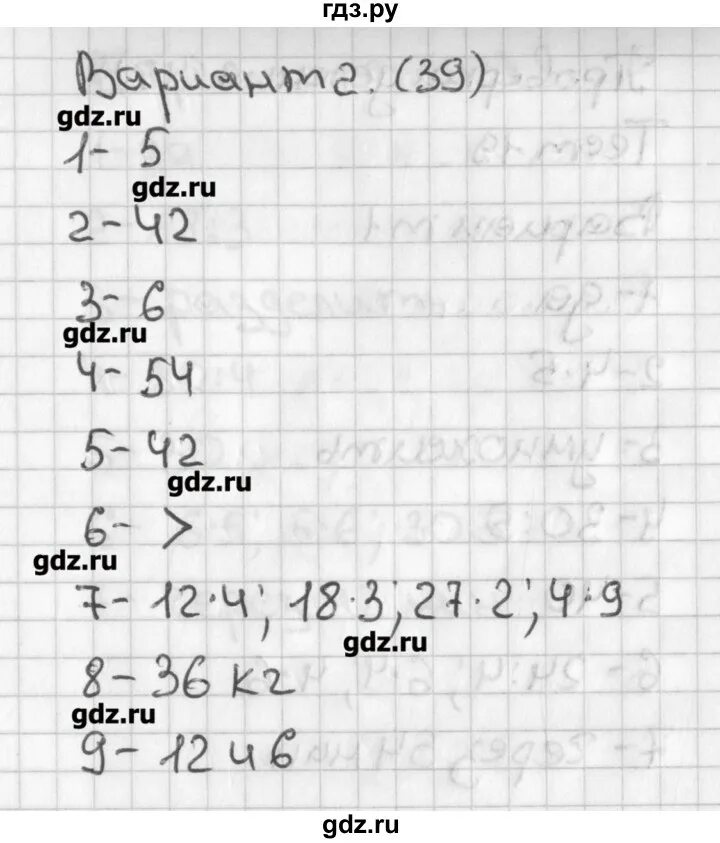 гдз.ру
Вариант 2. (39)
gdz.ru
1- 5
gdz.ru
2- 42
3- 6
gdz.ru
4- 54
5- 42
gdz.ru
6- >
gdz.ru
7- 12·4; 18·3; 27·2; 4·9
gdz.ru
8- 36 кг
gdz.ru
9- 12 и 6
gdz.ru